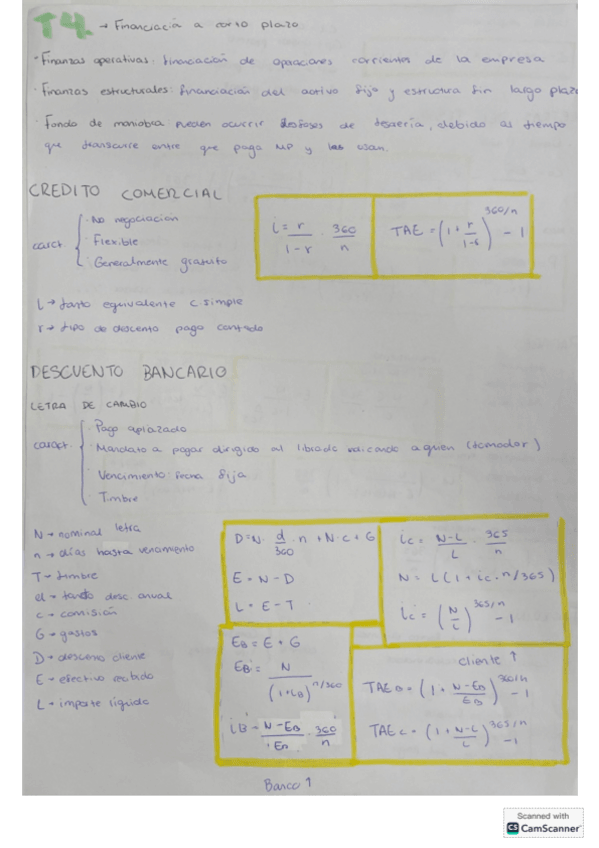 T4. → Financiación a corto plazo
· Finanzas operativas: financiación de operaciones corrientes de la empresa
· Finanzas estructurales: financiación del activo fijo y estructura fin largo plazo
· Fondo de maniobra: pueden ocurrir de tesorería, debido al tiempo
que transcurre entre que paga MP y las usan.
CREDITO COMERCIAL
caract.
· No negociación
· Flexible
· Generalmente gratuito
i = r/(1-r) · 360/n
TAE = (1 + r/(1-r))^(360/n) - 1
i → tanto equivalente c. simple
r → tipo de descuento pago contado
DESCUENTO BANCARIO
LETRA DE CAMBIO
caract.
· Pago aplazado
· Mandato a pagar dirigido al indicando a quien (tomador)
· Vencimiento: fecha fija
· Timbre
N → nominal letra
n → días hasta vencimiento
T → timbre
d → tanto desc anual
c → comisión
G → gastos
D → descuento cliente
E → efectivo recibido
L → importe líquido
D = N · d/360 · n + N · c + G
E = N - D
L = E - T
ic = (N-L)/L · 365/n
N = L (1 + ic · n/365)
ic = (N/L)^(365/n) - 1
EB = E + G
EB = N/(1+iB)^(n/360)
iB = (N-EB)/EB · 360/n
Banco ↑
cliente ↑
TAE B = (1 + (N-EB)/EB)^(360/n) - 1
TAE c = (1 + (N-L)/L)^(365/n) - 1
Scanned with
CS CamScanner